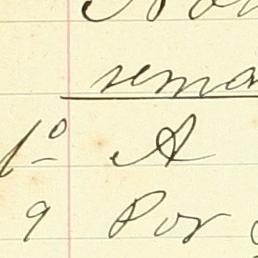 sema
1º A
9 Por